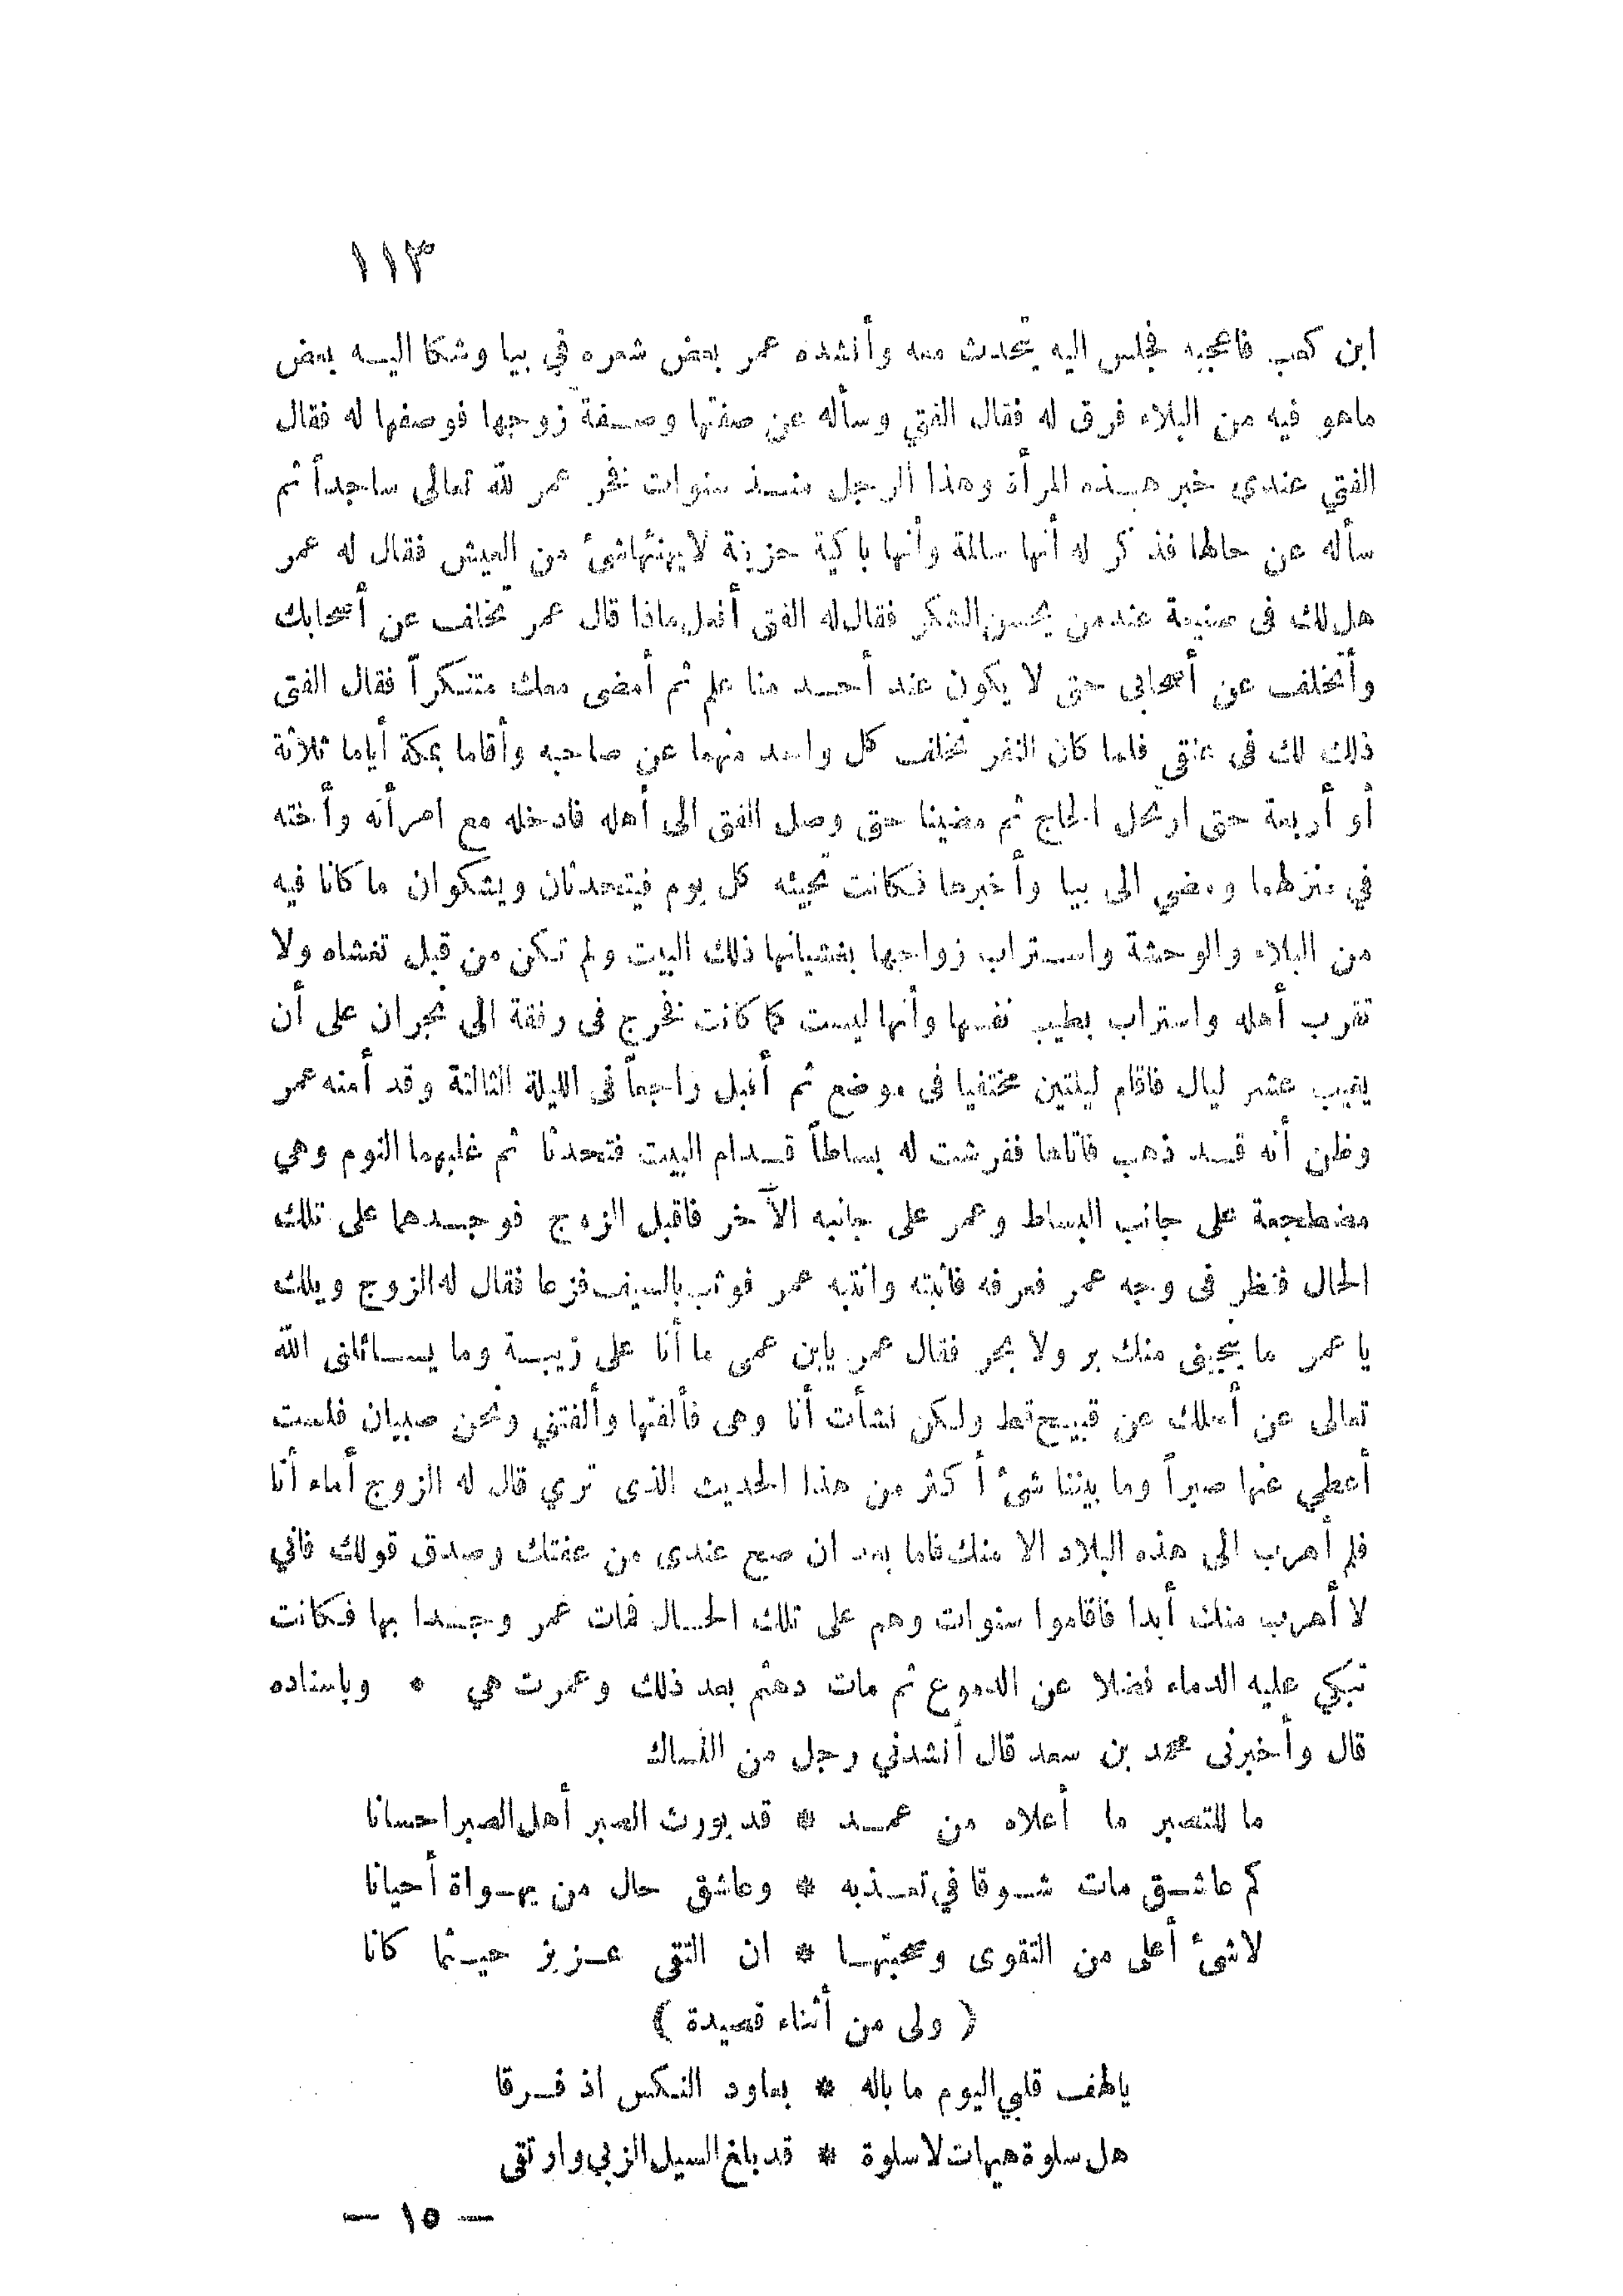 ١١٣
ابن كعب فاعجبه فجلس اليه يتحدث معه وأنشده عمر بعض شعره في بيا وشكا اليـه بعض
ماهو فيه من البلاء فرق له فقال الفتي وسأله عن صفتها وصـفة زوجها فوصفها له فقال
الفتي عندى خبر هـذه المرأة وهذا الرجل منـذ سنوات نخر عمر لله تعالى ساجداً ثم
سأله عن حالها فذ كر له أنها سالمة وأنها با كية حزينة لا يهنئهاشئ من العيش فقال له عمر
هل لك فى صنيعة عند من يحسن الشكر فقال له الفتى أفعل ماذا قال عمر تخلف عن أصحابك
وأتخلف عن أصحابى حتى لا يكون عند أحـد منا علم ثم أمضى معك متنـكراً فقال الفتى
ذلك لك فى عنقي فلما كان النفر تخلف كل واحد منهما عن صاحبه وأقاما بمكة أياما ثلاثة
أو أربعة حتى ارتحل الحاج ثم مضينا حتى وصل الفتى الى أهله فادخله مع امرأته وأخته
في منزلهما ومضي الى بيا وأخبرها فـكانت تجيئه كل يوم فيتحدثان ويشكوان ما كانا فيه
من البلاء والوحشة واسـتراب زواجها بغشيانها ذلك البيت ولم تكن من قبل تغشاه ولا
تقرب أهله واستراب بطيب نفسها وأنها ليست كما كانت نخرج فى رفقة الى نجران على أن
يغيب عشر ليال فاقام ليلتين مختفيا فى موضع ثم أقبل راجعاً فى الليلة الثالثة وقد أمنه عمر
وظن أنه قـد ذهب فاتاها ففرشت له بساطاً قـدام البيت فتحدثا ثم غلبهما النوم وهي
مضطجعة على جانب البساط وعمر على جانبه الآخر فاقبل الزوج فوجـدهما على تلك
الحال فنظر فى وجه عمر فعرفه فاثبته وانتبه عمر فوثب بالسيف فزعا فقال له الزوج ويلك
يا عمر ما ينجيني منك بر ولا بحر فقال عمر يابن عمى ما أنا على زيبـة وما يسـائلنى الله
تعالى عن أهلك عن قبيح قط ولكن نشأت أنا وهى فألفتها وألفتني ونحن صبيان فلست
أعطي عنها صبراً وما بيننا شئ أ كثر من هذا الحديث الذى تري قال له الزوج أماء أنا
فلم أهرب الى هذه البلاد الا منك فاما بعد ان صح عندى من عفتك وصدق قولك فاني
لا أهرب منك أبدا فاقاموا سنوات وهم على تلك الحـال فمات عمر وجـدا بها فـكانت
تبكي عليه الدماء فضلا عن الدموع ثم مات دهثم بعد ذلك وعمرت هي * وباسناده
قال وأخبرنى محمد بن سعد قال أنشدني رجل من النساك
ما للتصبر ما أعلاه من عمـد * قد يورث الصبر أهل الصبر احسانا
كم عاشـق مات شـوقا في تعـذبه * وعاشق حال من يهـواة أحيانا
لا شئ أعلى من التقوى وصحبتهـا * ان التقى عـزيز حيـثما كانا
( ولى من أثناء قصيدة )
يالهف قلبي اليوم ما باله * يعاود النـكس اذ فـرقا
هل سلوة هيهات لا سلوة * قد بلغ السيل الزبي وارتقى
— ١٥ —